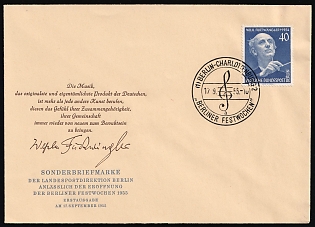 WILH. FURTWÄNGLER 1954
40
DEUTSCHE BUNDESPOST
BERLIN-CHARLOTTENBURG
17.9.
"BERLINER FESTWOCHEN"
Die Musik,
das originalste und eigentümlichste Produkt der Deutschen,
ist mehr als jede andere Kunst berufen,
diesen das Gefühl ihrer Zusammengehörigkeit,
ihrer Gemeinschaft
immer wieder von neuem zum Bewußtsein
zu bringen.
Wilhelm Furtwängler
SONDERBRIEFMARKE
DER LANDESPOSTDIREKTION BERLIN
ANLÄSSLICH DER ERÖFFNUNG
DER BERLINER FESTWOCHEN 1955
ERSTAUSGABE
AM 17. SEPTEMBER 1955